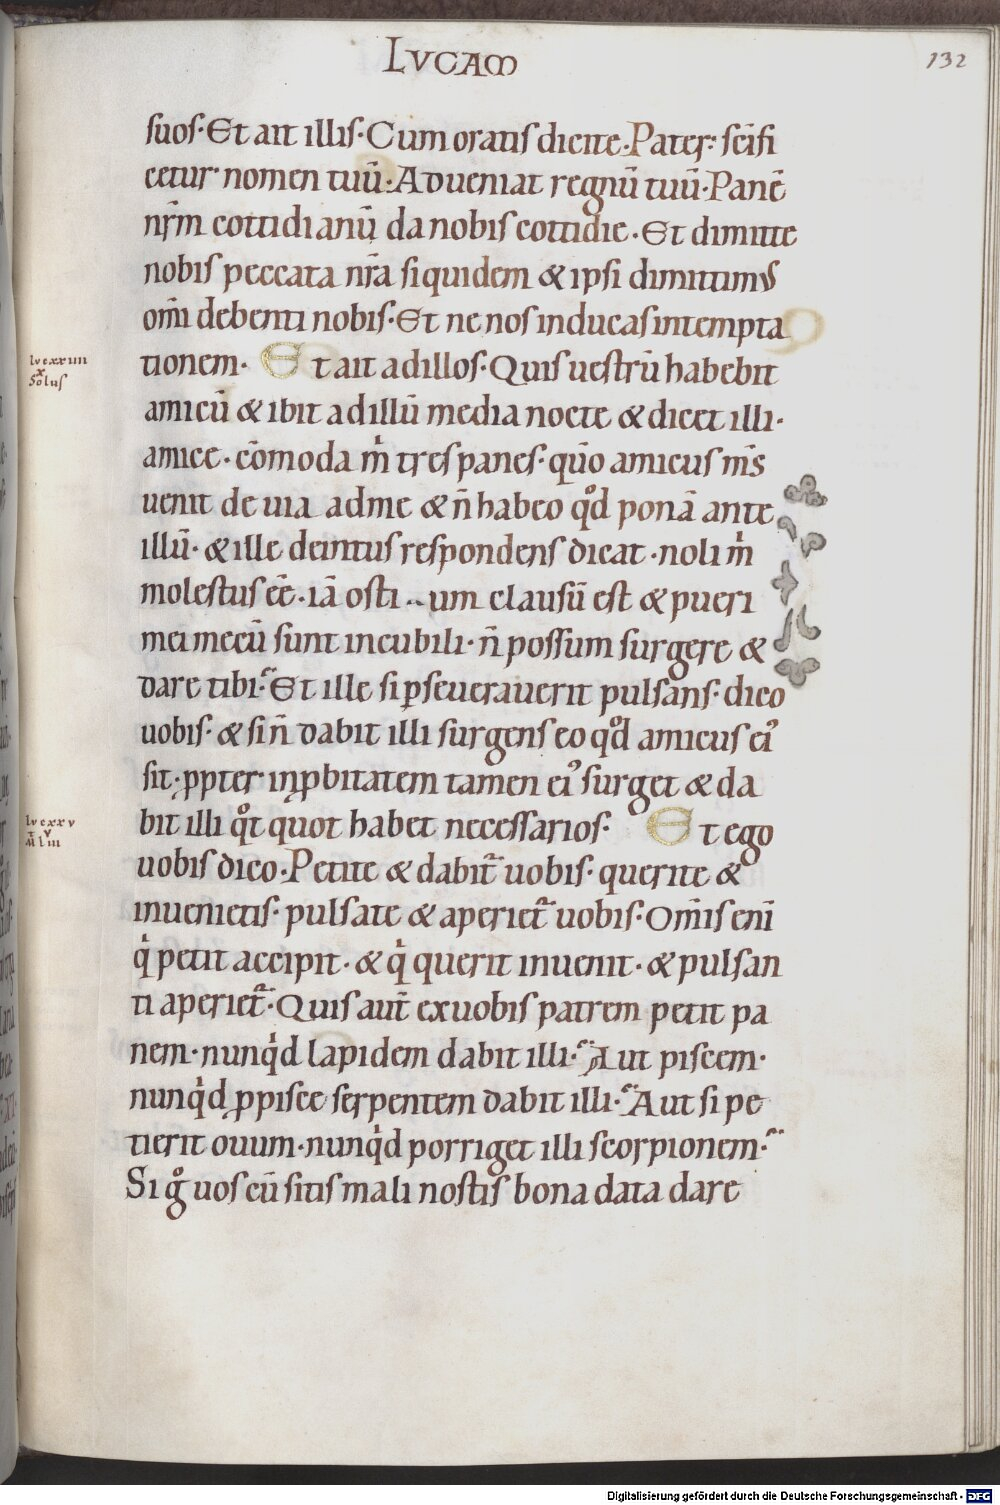 LVCAM
132
suos· Et ait illis· Cum oratis dicite· Pater· sc̄ifi
cetur nomen tuū· Adueniat regnū tuū· Panē
nr̄m cottidianū da nobis cottidie· Et dimitte
nobis peccata nr̄a siquidem & ipsi dimittimus
om̄i debenti nobis· Et ne nos inducas in tempta
tionem· Et ait ad illos· Quis uestrū habebit
amicū & ibit ad illū media nocte & dicet illi·
amice· cōmoda m̍ tres panes· qūo amicus m̄s
uenit de uia ad me & n̄ habeo qd̊ ponā ante
illū· & ille deintus respondens dicat· noli m̍
molestus eē· iā osti um clausū est & pueri
mei mecū sunt in cubili· n̄ possum surgere &
dare tibi· Et ille si pseuerauerit pulsans· dico
uobis· & si n̄ dabit illi surgens eo qd̊ amicus ei᾽
sit· ppter inpbitatem tamen ei᾽ surget & da
bit illi qͦt quot habet necessarios· Et ego
uobis dico· Petite & dabit̄ uobis· querite &
inuenietis· pulsate & aperiet̄ uobis· Om̄is eni̅
q̍ petit accipit· & q̍ querit inuenit· & pulsan
ti aperiet̄· Quis aut̄ ex uobis patrem petit pa
nem· nunq̍d lapidem dabit illi· Aut piscem·
nunq̍d p pisce serpentem dabit illi· Aut si pe
tierit ouum· nunq̍d porriget illi scorpionem·
Si gͦ uos cū sitis mali nostis bona data dare
lv cxxiiii
x
Solus
lv cxxv
Digitalisierung gefördert durch die Deutsche Forschungsgemeinschaft - DFG